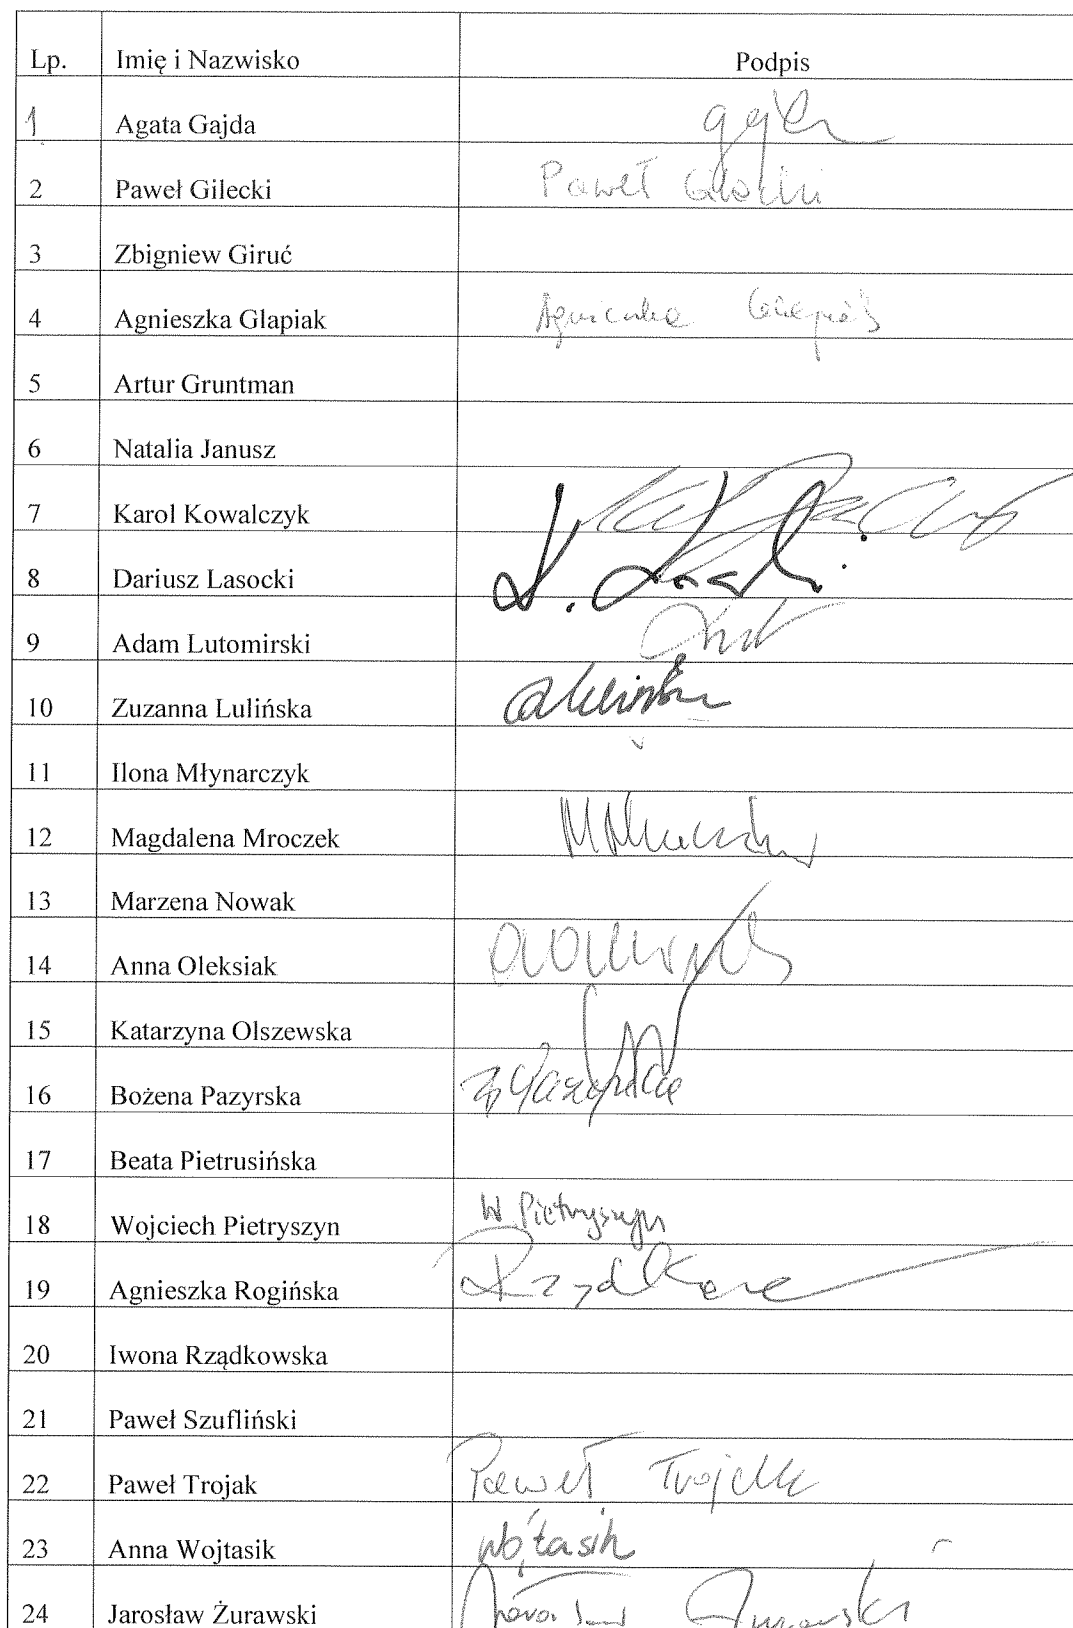 Lp. Imię i Nazwisko Podpis
1 Agata Gajda
2 Paweł Gilecki Paweł Gilecki
3 Zbigniew Giruć
4 Agnieszka Glapiak Agnieszka Glapiak
5 Artur Gruntman
6 Natalia Janusz
7 Karol Kowalczyk
8 Dariusz Lasocki
9 Adam Lutomirski
10 Zuzanna Lulińska
11 Ilona Młynarczyk
12 Magdalena Mroczek
13 Marzena Nowak
14 Anna Oleksiak
15 Katarzyna Olszewska
16 Bożena Pazyrska
17 Beata Pietrusińska
18 Wojciech Pietryszyn W Pietryszyn
19 Agnieszka Rogińska
20 Iwona Rządkowska
21 Paweł Szufliński
22 Paweł Trojak Paweł Trojak
23 Anna Wojtasik Wojtasik
24 Jarosław Żurawski Jarosław Żurawski